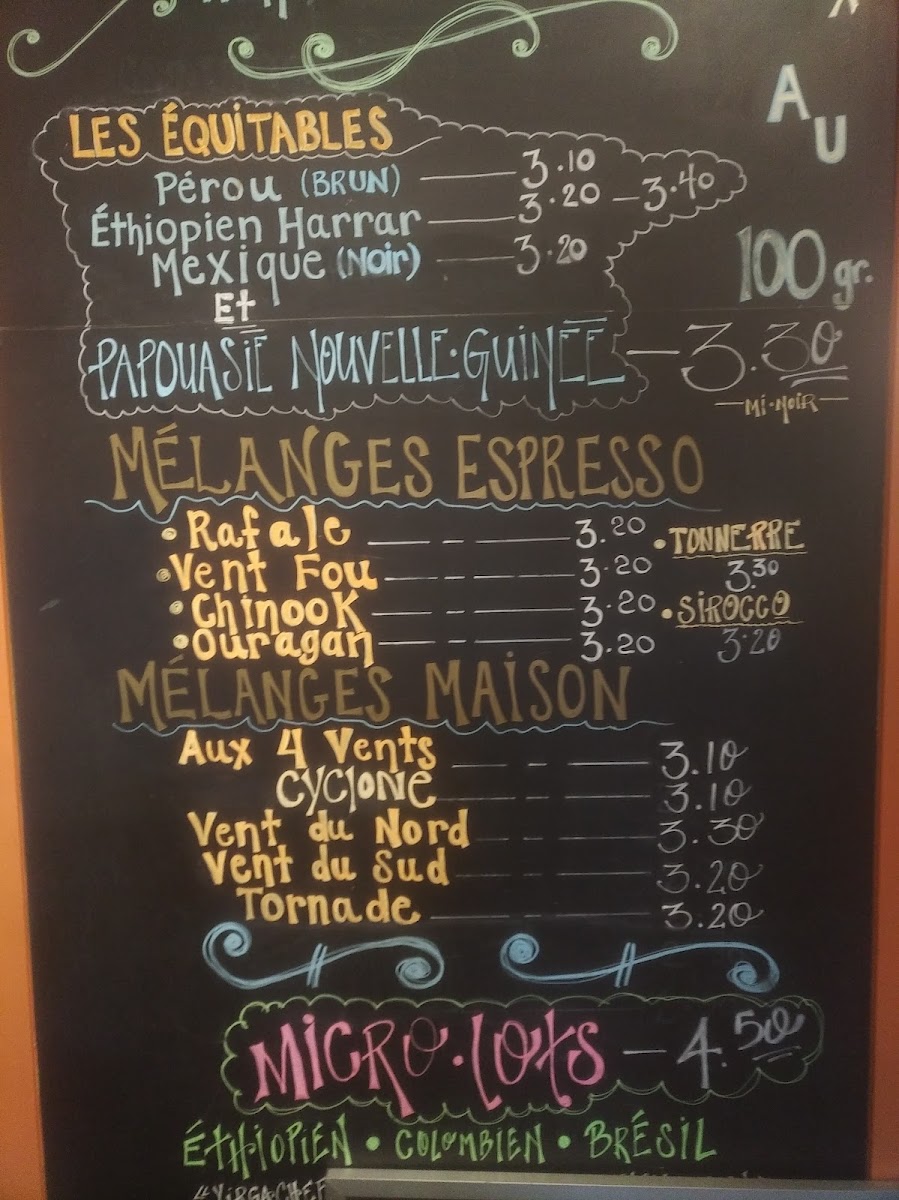 AU
100 gr.
LES ÉQUITABLES
Pérou (BRUN) 3.10
Éthiopien Harrar 3.20 - 3.40
Mexique (Noir) 3.20
Et
PAPOUASIE NOUVELLE·GUINÉE - 3.30
MI·NOIR
MÉLANGES ESPRESSO
• Rafale 3.20
• Vent Fou 3.20
• Chinook 3.20
• Ouragan 3.20
• TONNERRE
3.30
• SIROCCO
3.20
MÉLANGES MAISON
Aux 4 Vents 3.10
CYCLONE 3.10
Vent du Nord 3.30
Vent du Sud 3.20
Tornade 3.20
MICRO·LOTS - 4.50
ÉTHIOPIEN • COLOMBIEN • BRÉSIL